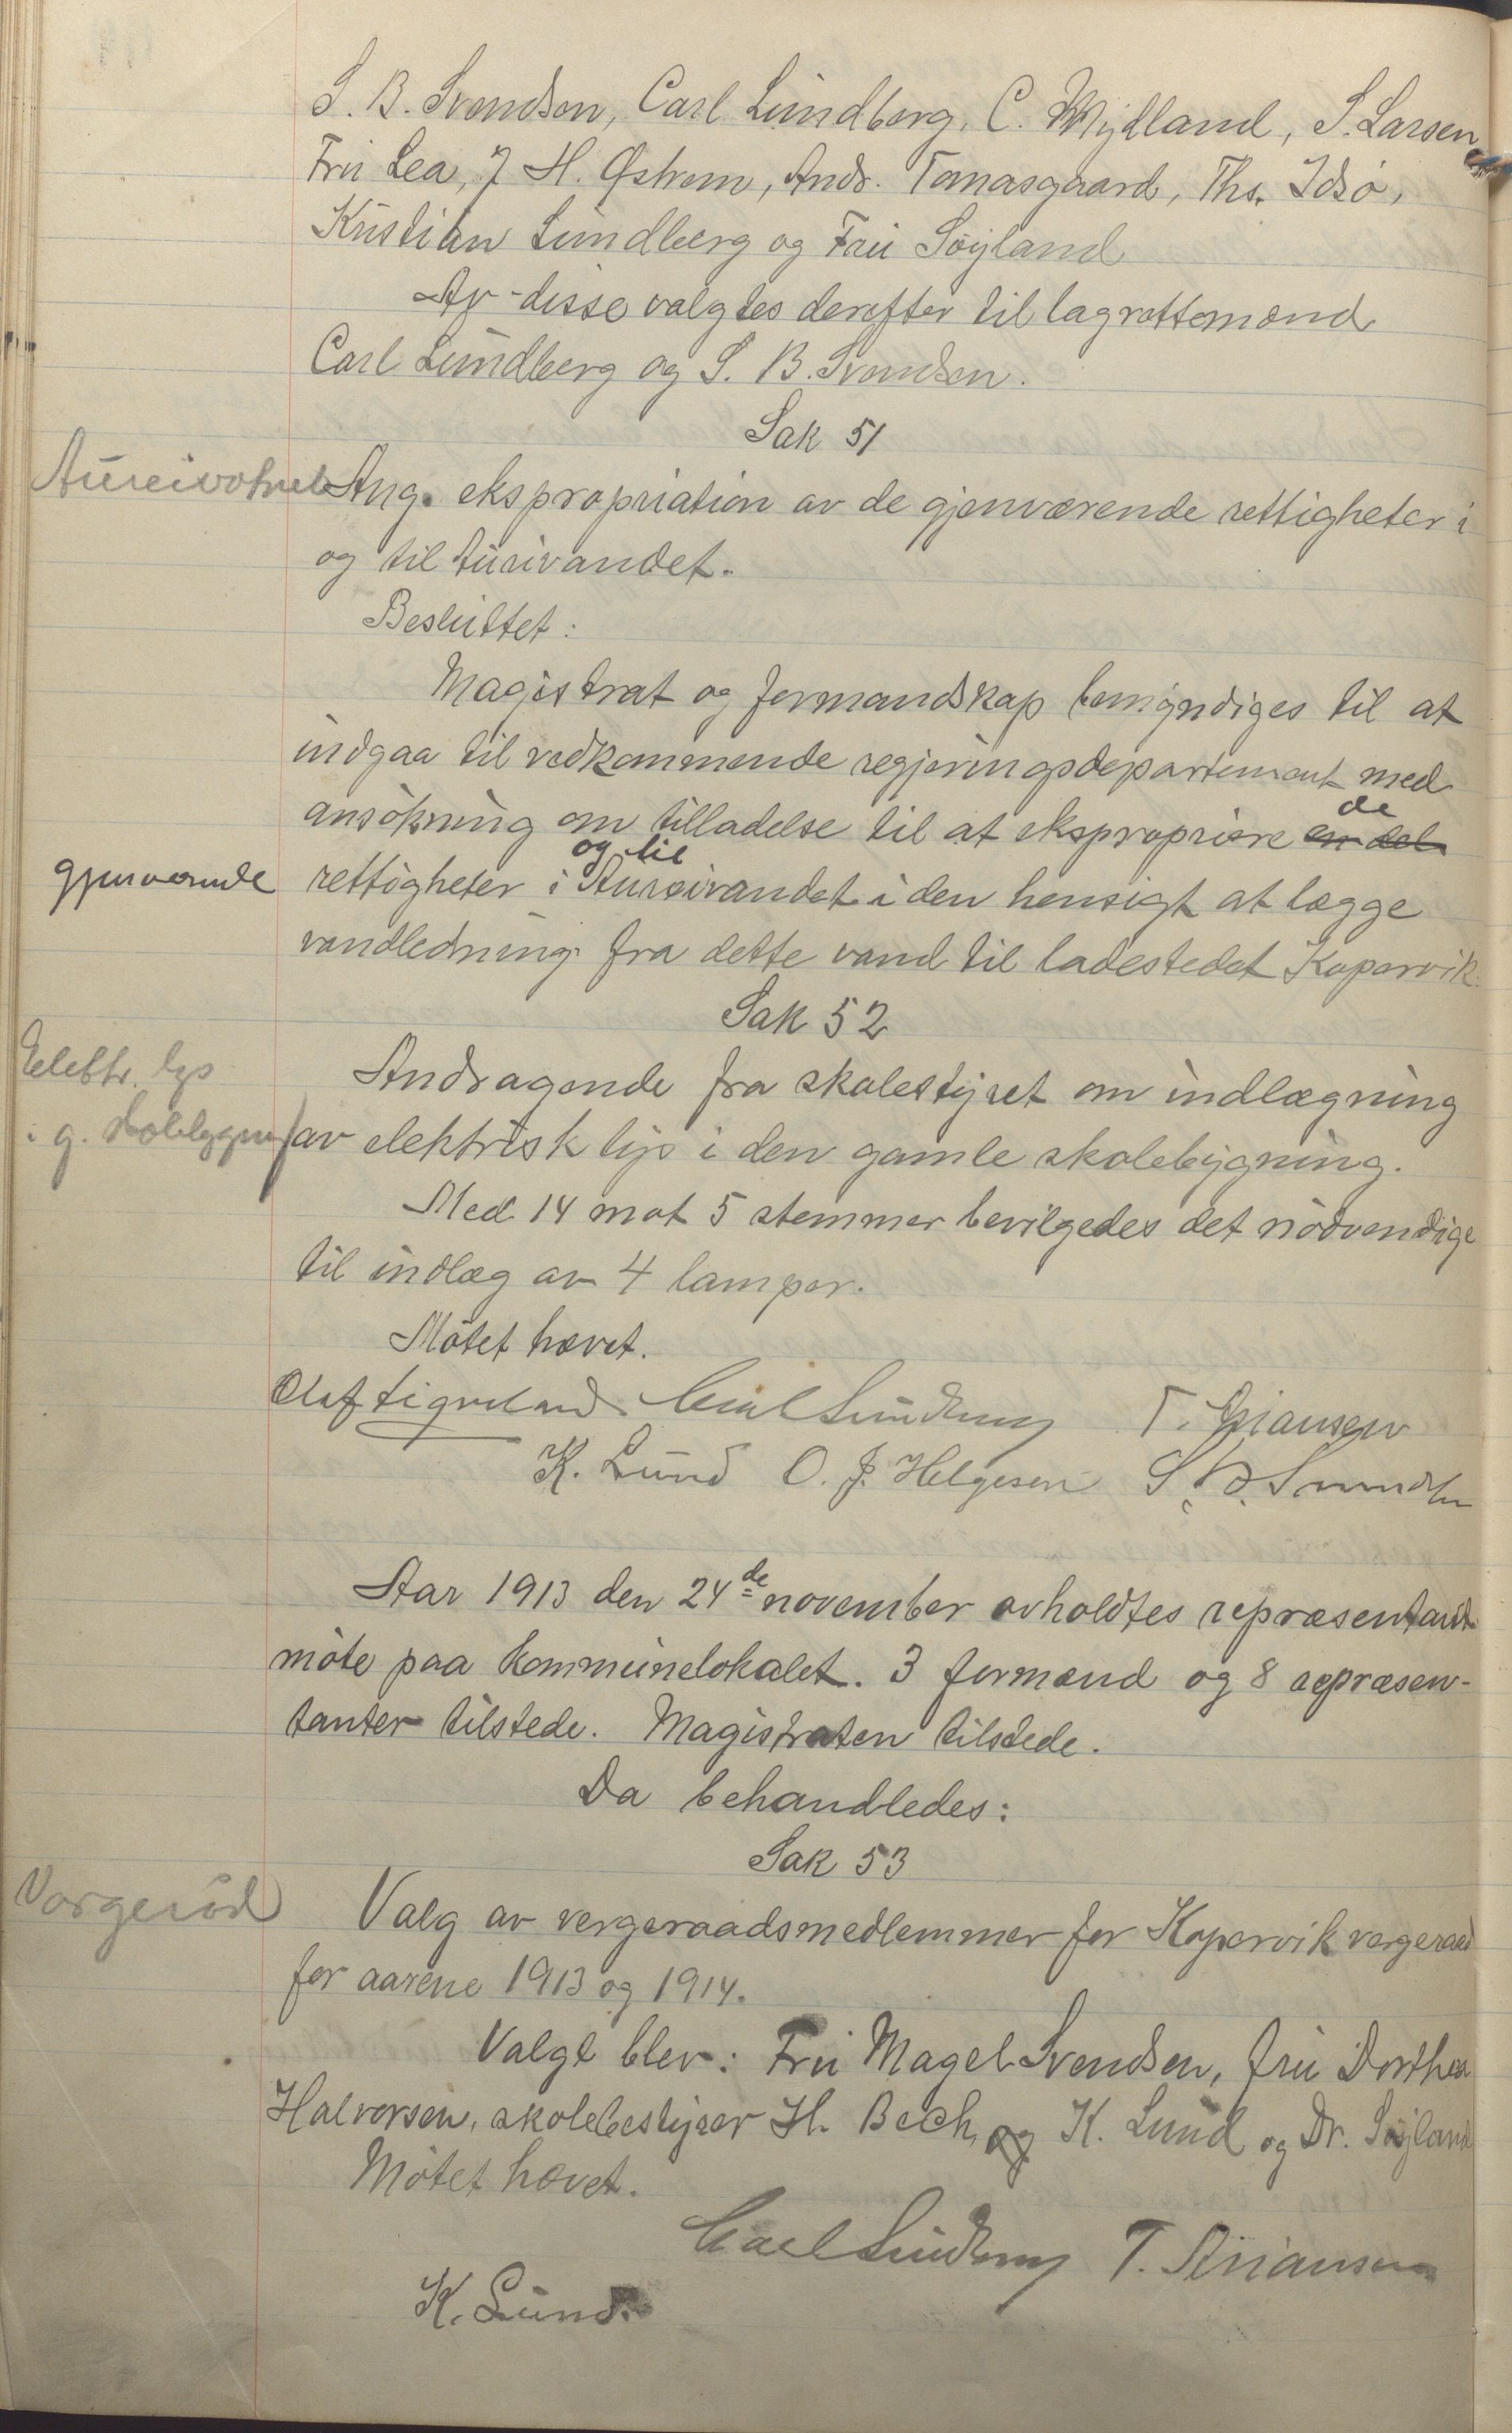 S. B. Svendsen, Carl Lundberg, C. Mydland, S. Larsen
Fru Lea, J. H. Østrem, Andr. Tanasgaard, Ths. Idsö,
Kristian Lundberg og Fru Söyland
Av disse valgtes derefter til lagrettemænd
Carl Lundberg og S. B. Svendsen.
Sak 51
Ang. ekspropriation av de gjenværende rettigheter i
og til Aureivandet.
Besluttet:
Magistrat og formandskap bemyndiges til at
indgaa til vedkommende regjeringsdepartement med
ansökning om tilladelse til at ekspropriere en del de
gjenværende rettigheter i og til Aureivandet i den hensigt at lægge
vandledning fra dette vand til ladestedet Kopervik.
Sak 52
Elektr. lys
Andragende fra skolestyret om indlægning
i g. skolebygning
av elektrisk lys i den gamle skolebygning.
Med 14 mot 5 stemmer bevilgedes det nödvendige
til indlæg av 4 lamper.
Mötet hævet.
Olaf Eigeland Carl Lundberg T. Ariansen
K. Lund O. J. Helgesen S. B. Svendsen
Aar 1913 den 24de november avholdtes repræsentant
möte paa kommunelokalet. 3 formænd og 8 repræsen-
tanter tilstede. Magistraten tilstede.
Da behandledes:
Sak 53
Vergeråd
Valg av vergeraadsmedlemmer for Kopervik vergeraad
for aarene 1913 og 1914.
Valgt blev: Fru Magel Svendsen, fru Dorthea
Halvorsen, skolebestyrer H. Bech, og K. Lund og Dr. Söyland
Mötet hævet.
Carl Lundberg T. Ariansen
K. Lund.